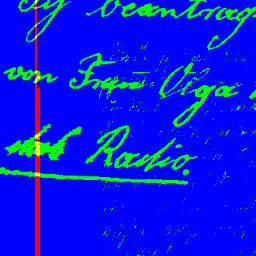 beantrag
von Frau Olga
Radio.